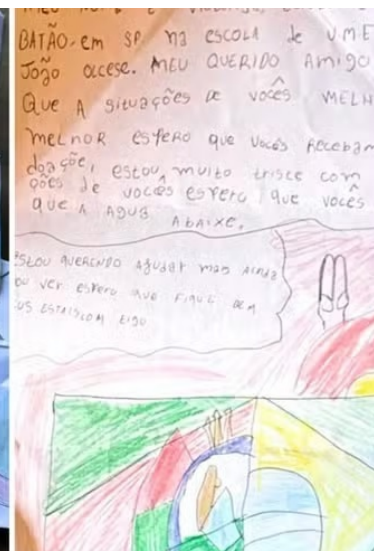 MEU NOME É
BATÃO, em SP na ESCOLA de U.M.E
João occese. MEU QUERIDO Amigo
Que A situações de vocês MELH
meLnor espero que vocês Recebam
doações, estou muito trisce com
ções de vocies espero que vocês
que A AguA AbAixe.
ESTOU QUERENDO AJUDAR mas AindA
ou ver espero que Fique bem
us estais com tigo